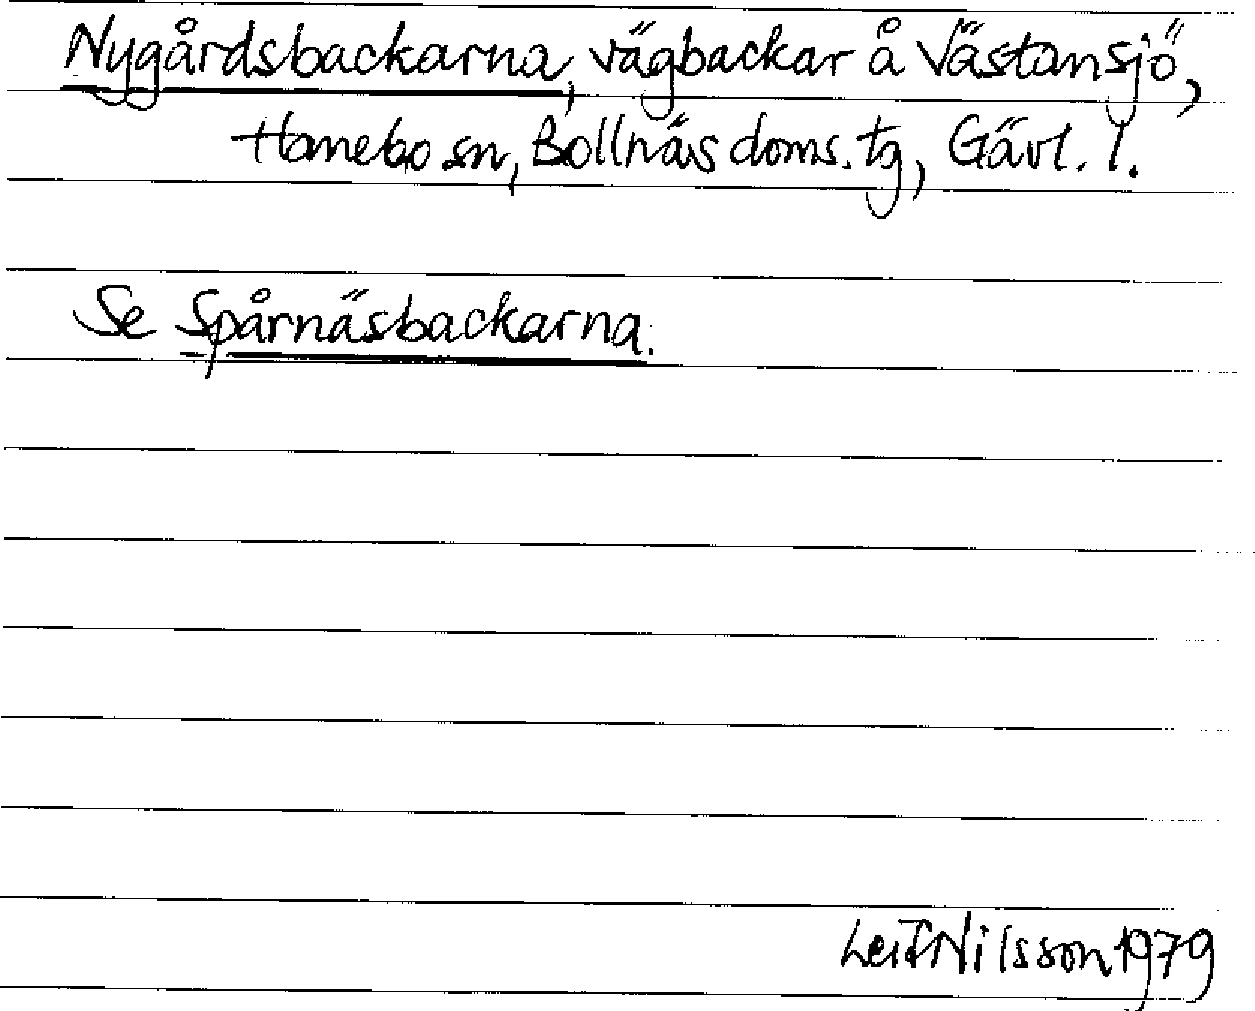 Nygårdsbackarna, vägbackar å Västansjö,
Hanebo sn, Bollnäs doms. tg, Gävl. l.
Se Spårnäsbackarna.
Leif Nilsson 1979